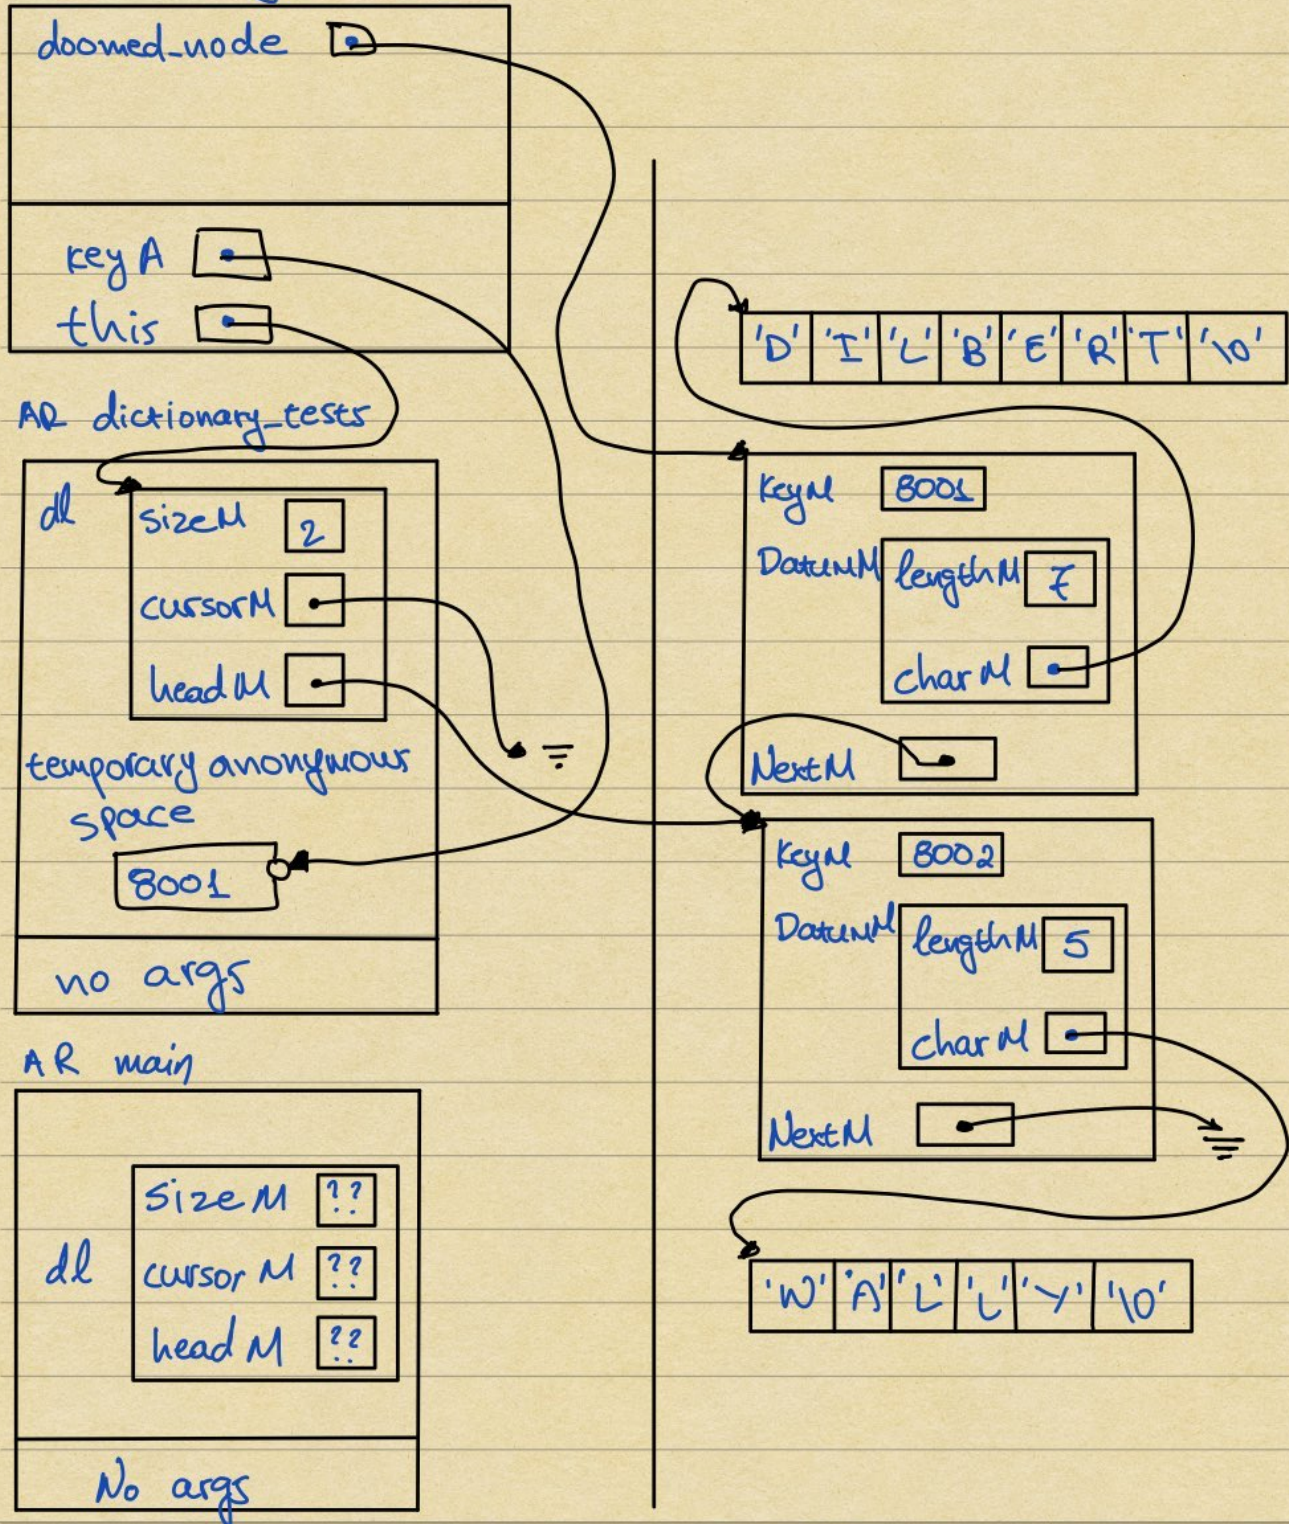 doomed_node
keyA
this
AR dictionary_tests
dl
sizeM 2
cursorM
headM
temporary anonymous
space
8001
no args
AR main
dl
sizeM ??
cursorM ??
headM ??
No args
'D' 'I' 'L' 'B' 'E' 'R' 'T' '\0'
KeyM 8001
DatumM lengthM 7
charM
NextM
KeyM 8002
DatumM lengthM 5
charM
NextM
'W' 'A' 'L' 'L' 'Y' '\0'